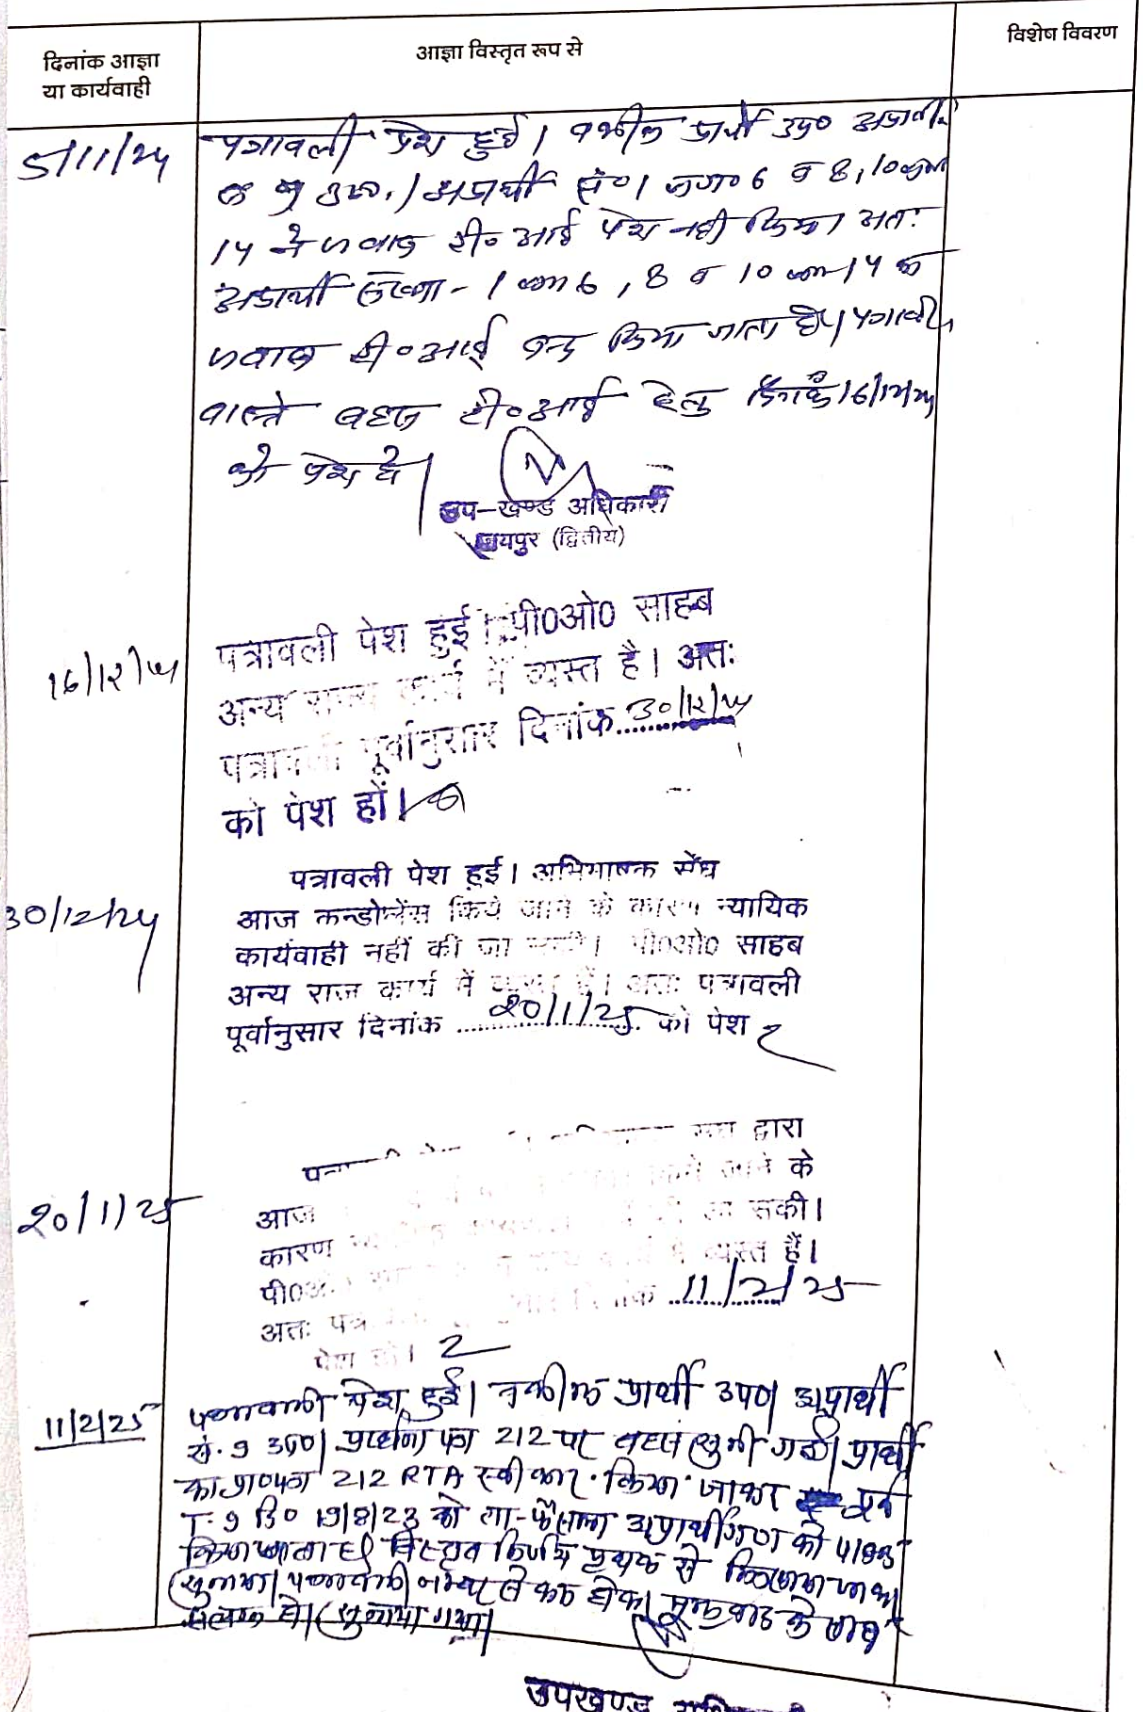 दिनांक आज्ञा
या कार्यवाही
आज्ञा विस्तृत रूप से
विशेष विवरण
5/11/24
पत्रावली पेश हुई। वकील प्रार्थी उप०
अप्रार्थी सं० 1 6 व 8, 10
14 ने जवाब टी० आई पेश नहीं किया। अतः
अप्रार्थी संख्या - 1 6, 8 व 10 14 का
जवाब टी० आई बन्द किया जाता है। पत्रावली
वास्ते बहस टी० आई हेतु दिनांक 16/12/24
को पेश हो।
उप-खण्ड अधिकारी
जयपुर (द्वितीय)
16/12/24
पत्रावली पेश हुई। पी0ओ0 साहब
अन्य राज्य कार्य में व्यस्त है। अतः
पत्रावली पूर्वानुसार दिनांक 30/12/24
को पेश हों।
30/12/24
पत्रावली पेश हुई। अभिभाषक संघ
आज कन्डोलेंस किये जाने के कारण न्यायिक
कार्यवाही नहीं की जा सकी। पी0ओ0 साहब
अन्य राज कार्य में व्यस्त हैं। अतः पत्रावली
पूर्वानुसार दिनांक 20/1/25 को पेश
20/1/25
द्वारा
आज जाने के
कारण सकी।
पी0ओ0 में व्यस्त हैं।
अतः 11/2/25
पेश हो।
11/2/25
पत्रावली पेश हुई। वकील प्रार्थी उप०। अप्रार्थी
सं. 9 उप०। 212 पर बहस सुनी गई। प्रार्थी
का प्रा०पत्र 212 RTA स्वीकार किया जाकर पूर्व
19/8/23 को ता-फैसला अप्रार्थीगण को पाबंद
किया जाता है। विस्तृत निर्णय पृथक से लिखाया जाकर
सुनाया। पत्रावली नम्बर से कम होकर मूल वाद के साथ
संलग्न हो। सुनाया गया।
उपखण्ड